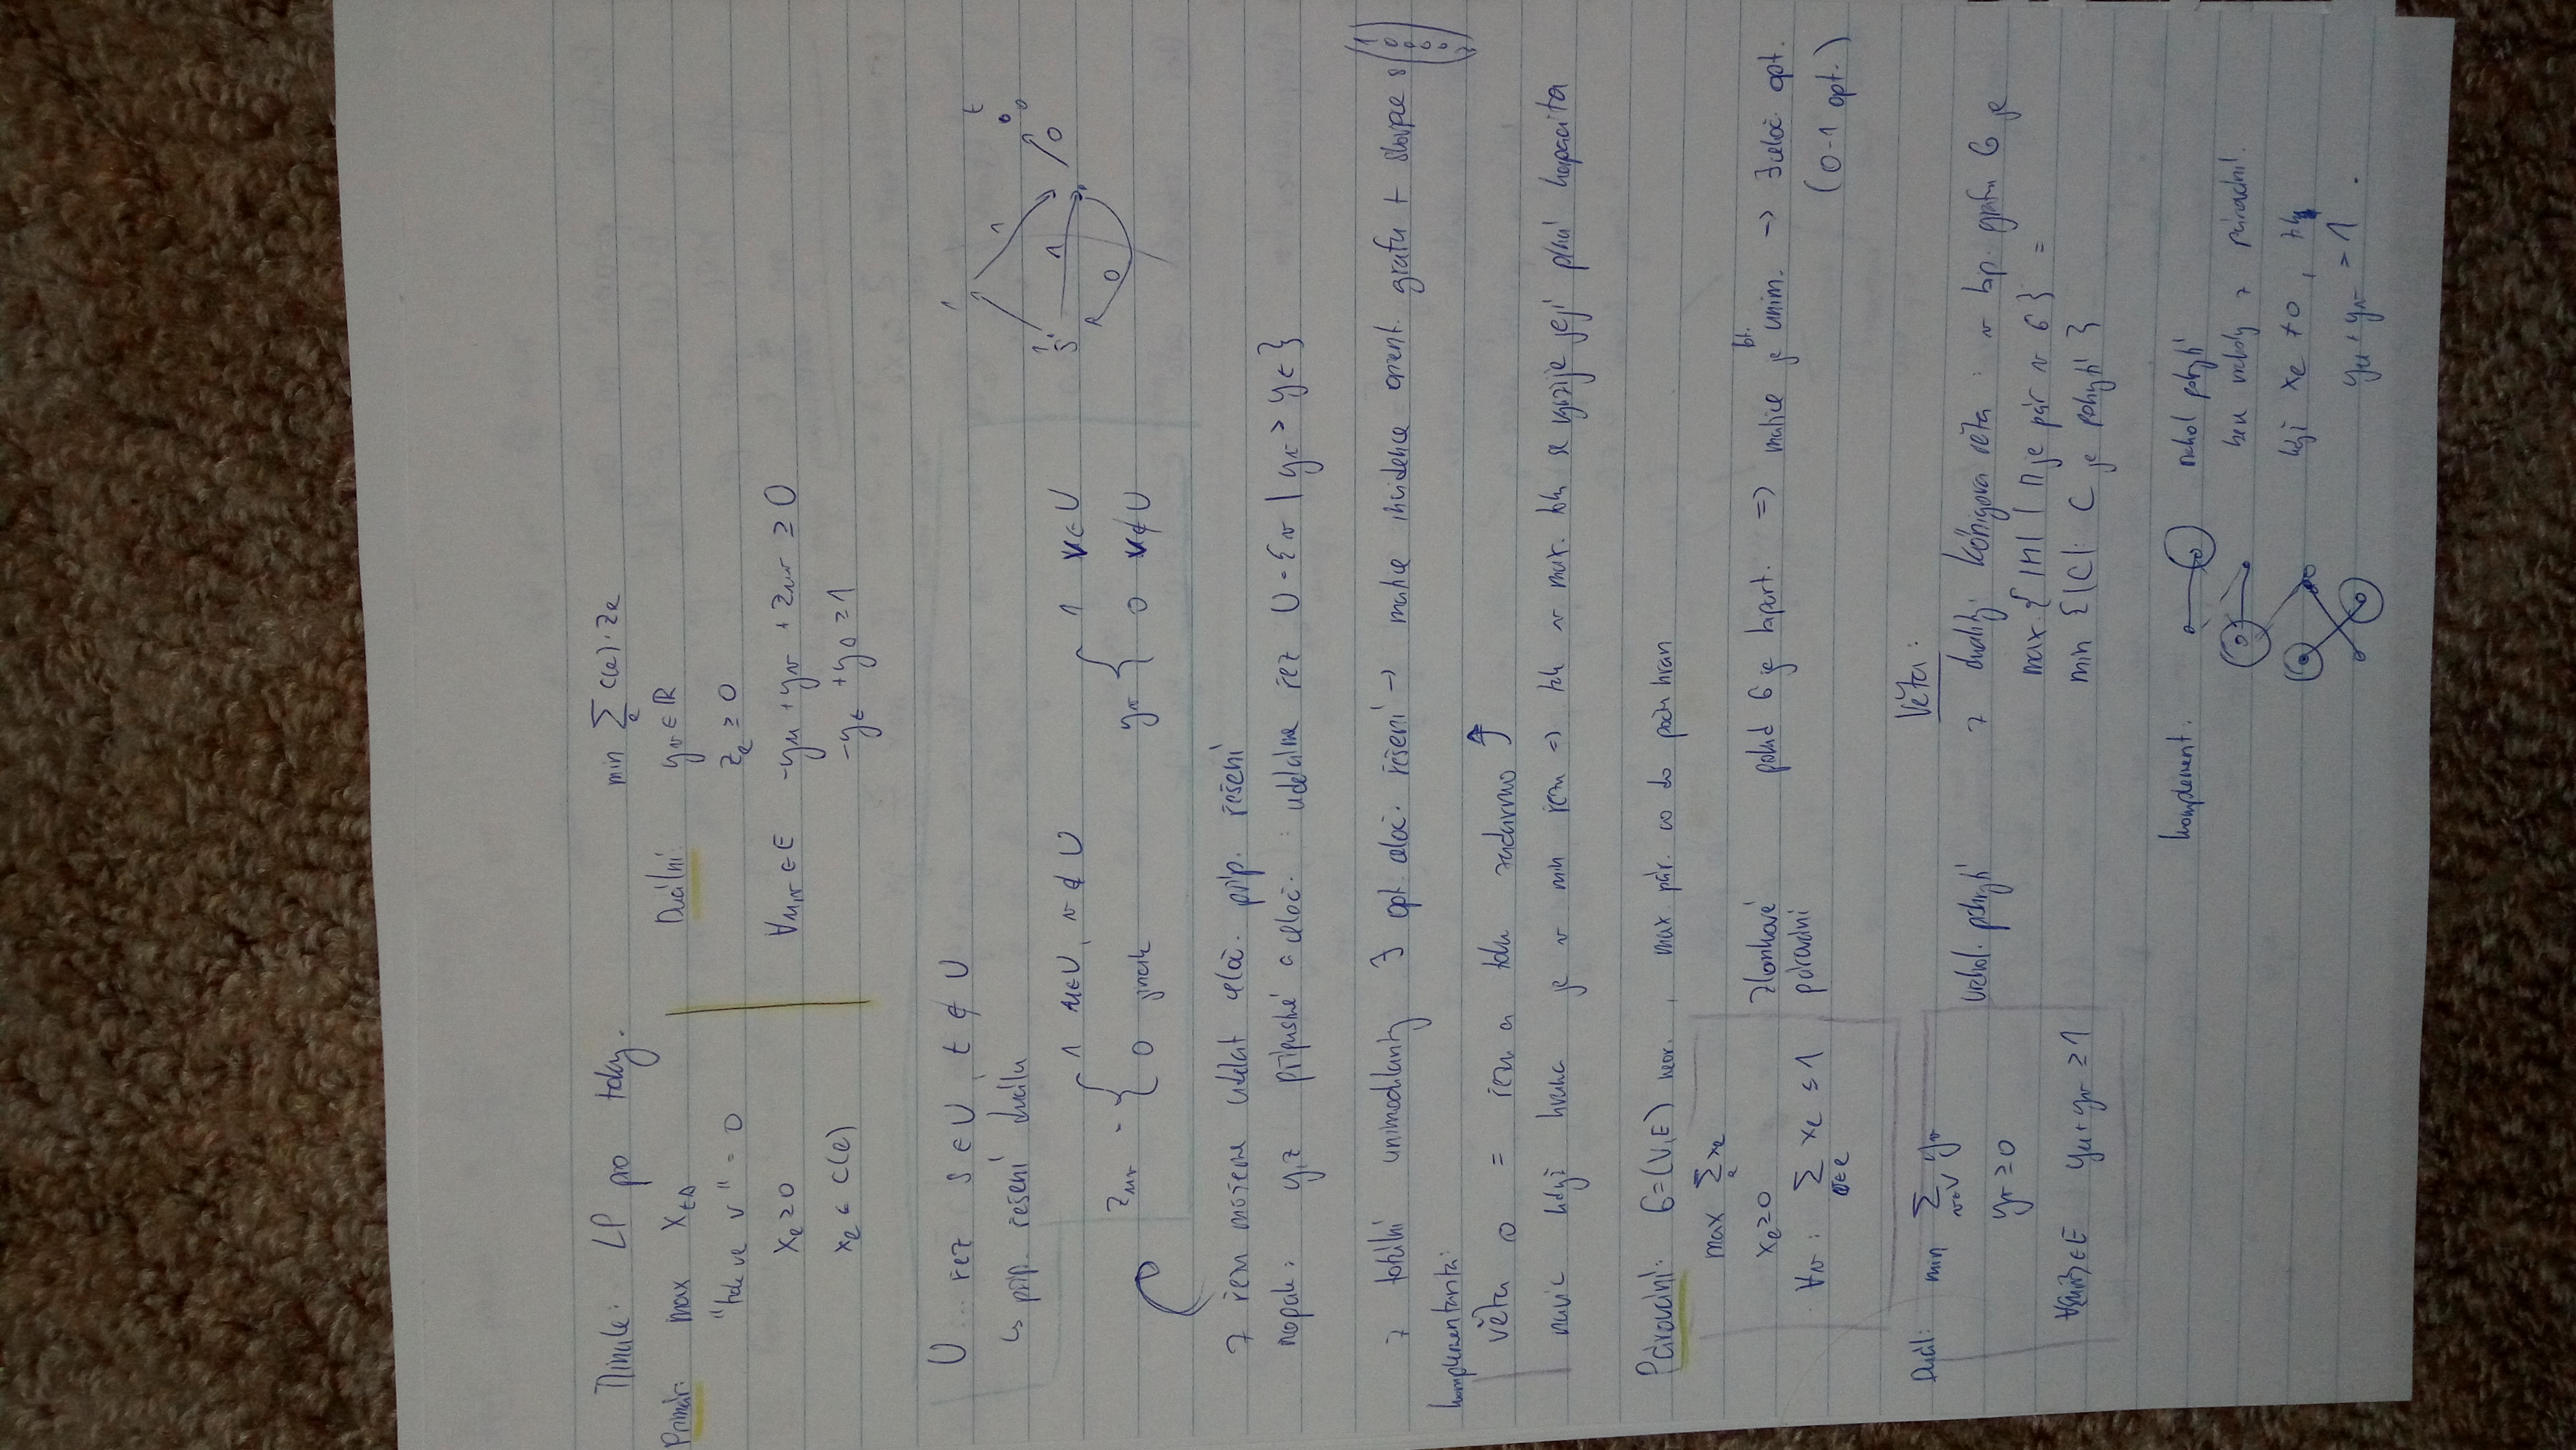 Minule: LP pro toky.
Primár: max x_ts
"tok ve v" = 0
x_e ≥ 0
x_e ≤ c(e)
Duální: min ∑_e c(e)·z_e
y_v ∈ ℝ
z_e ≥ 0
∀uv ∈ E -y_u + y_v + z_uv ≥ 0
-y_t + y_s ≥ 1
U ... řez s ∈ U, t ∉ U
↳ příp. řešení duálu
z_uv = { 1 u∈U, v∉U
0 jinak
y_v { 1 v∈U
0 v∉U
s t
1 1 1 0 0
R
z řezu můžeme udělat celoč. příp. řešení
naopak: y,z přípustné a celoč. : uděláme řez U = {v | y_v > y_t}
z totální unimodularity ∃ opt. celoč. řešení → matice incidence orient. grafu + sloupce s (1 0 0 0 0
komplementarita:
věta o = řezu a toku zadarmo
navíc když hrana je v min řezu ⇒ tak v max. toku se využije její plná kapacita
Párování: G=(V,E) neor. , max pár. co do počtu hran
max ∑_e x_e
x_e ≥ 0
∀v: ∑_{v∈e} x_e ≤ 1
zlomkové
párování
pokud G je bipart. ⇒ matice je tot. unim. → ∃ celoč. opt.
(0-1 opt.)
Duál: min ∑_{v∈V} y_v
y_v ≥ 0
∀{u,v}∈E y_u + y_v ≥ 1
vrchol. pokrytí
Věta:
z duality: Königova věta: v bip. grafu G je
max. {|M| | M je pár v G} =
min {|C|: C je pokrytí}
komplement.
vrchol pokrytí
beru vrcholy z párování.
když x_e ≠ 0, tak
y_u + y_v = 1.